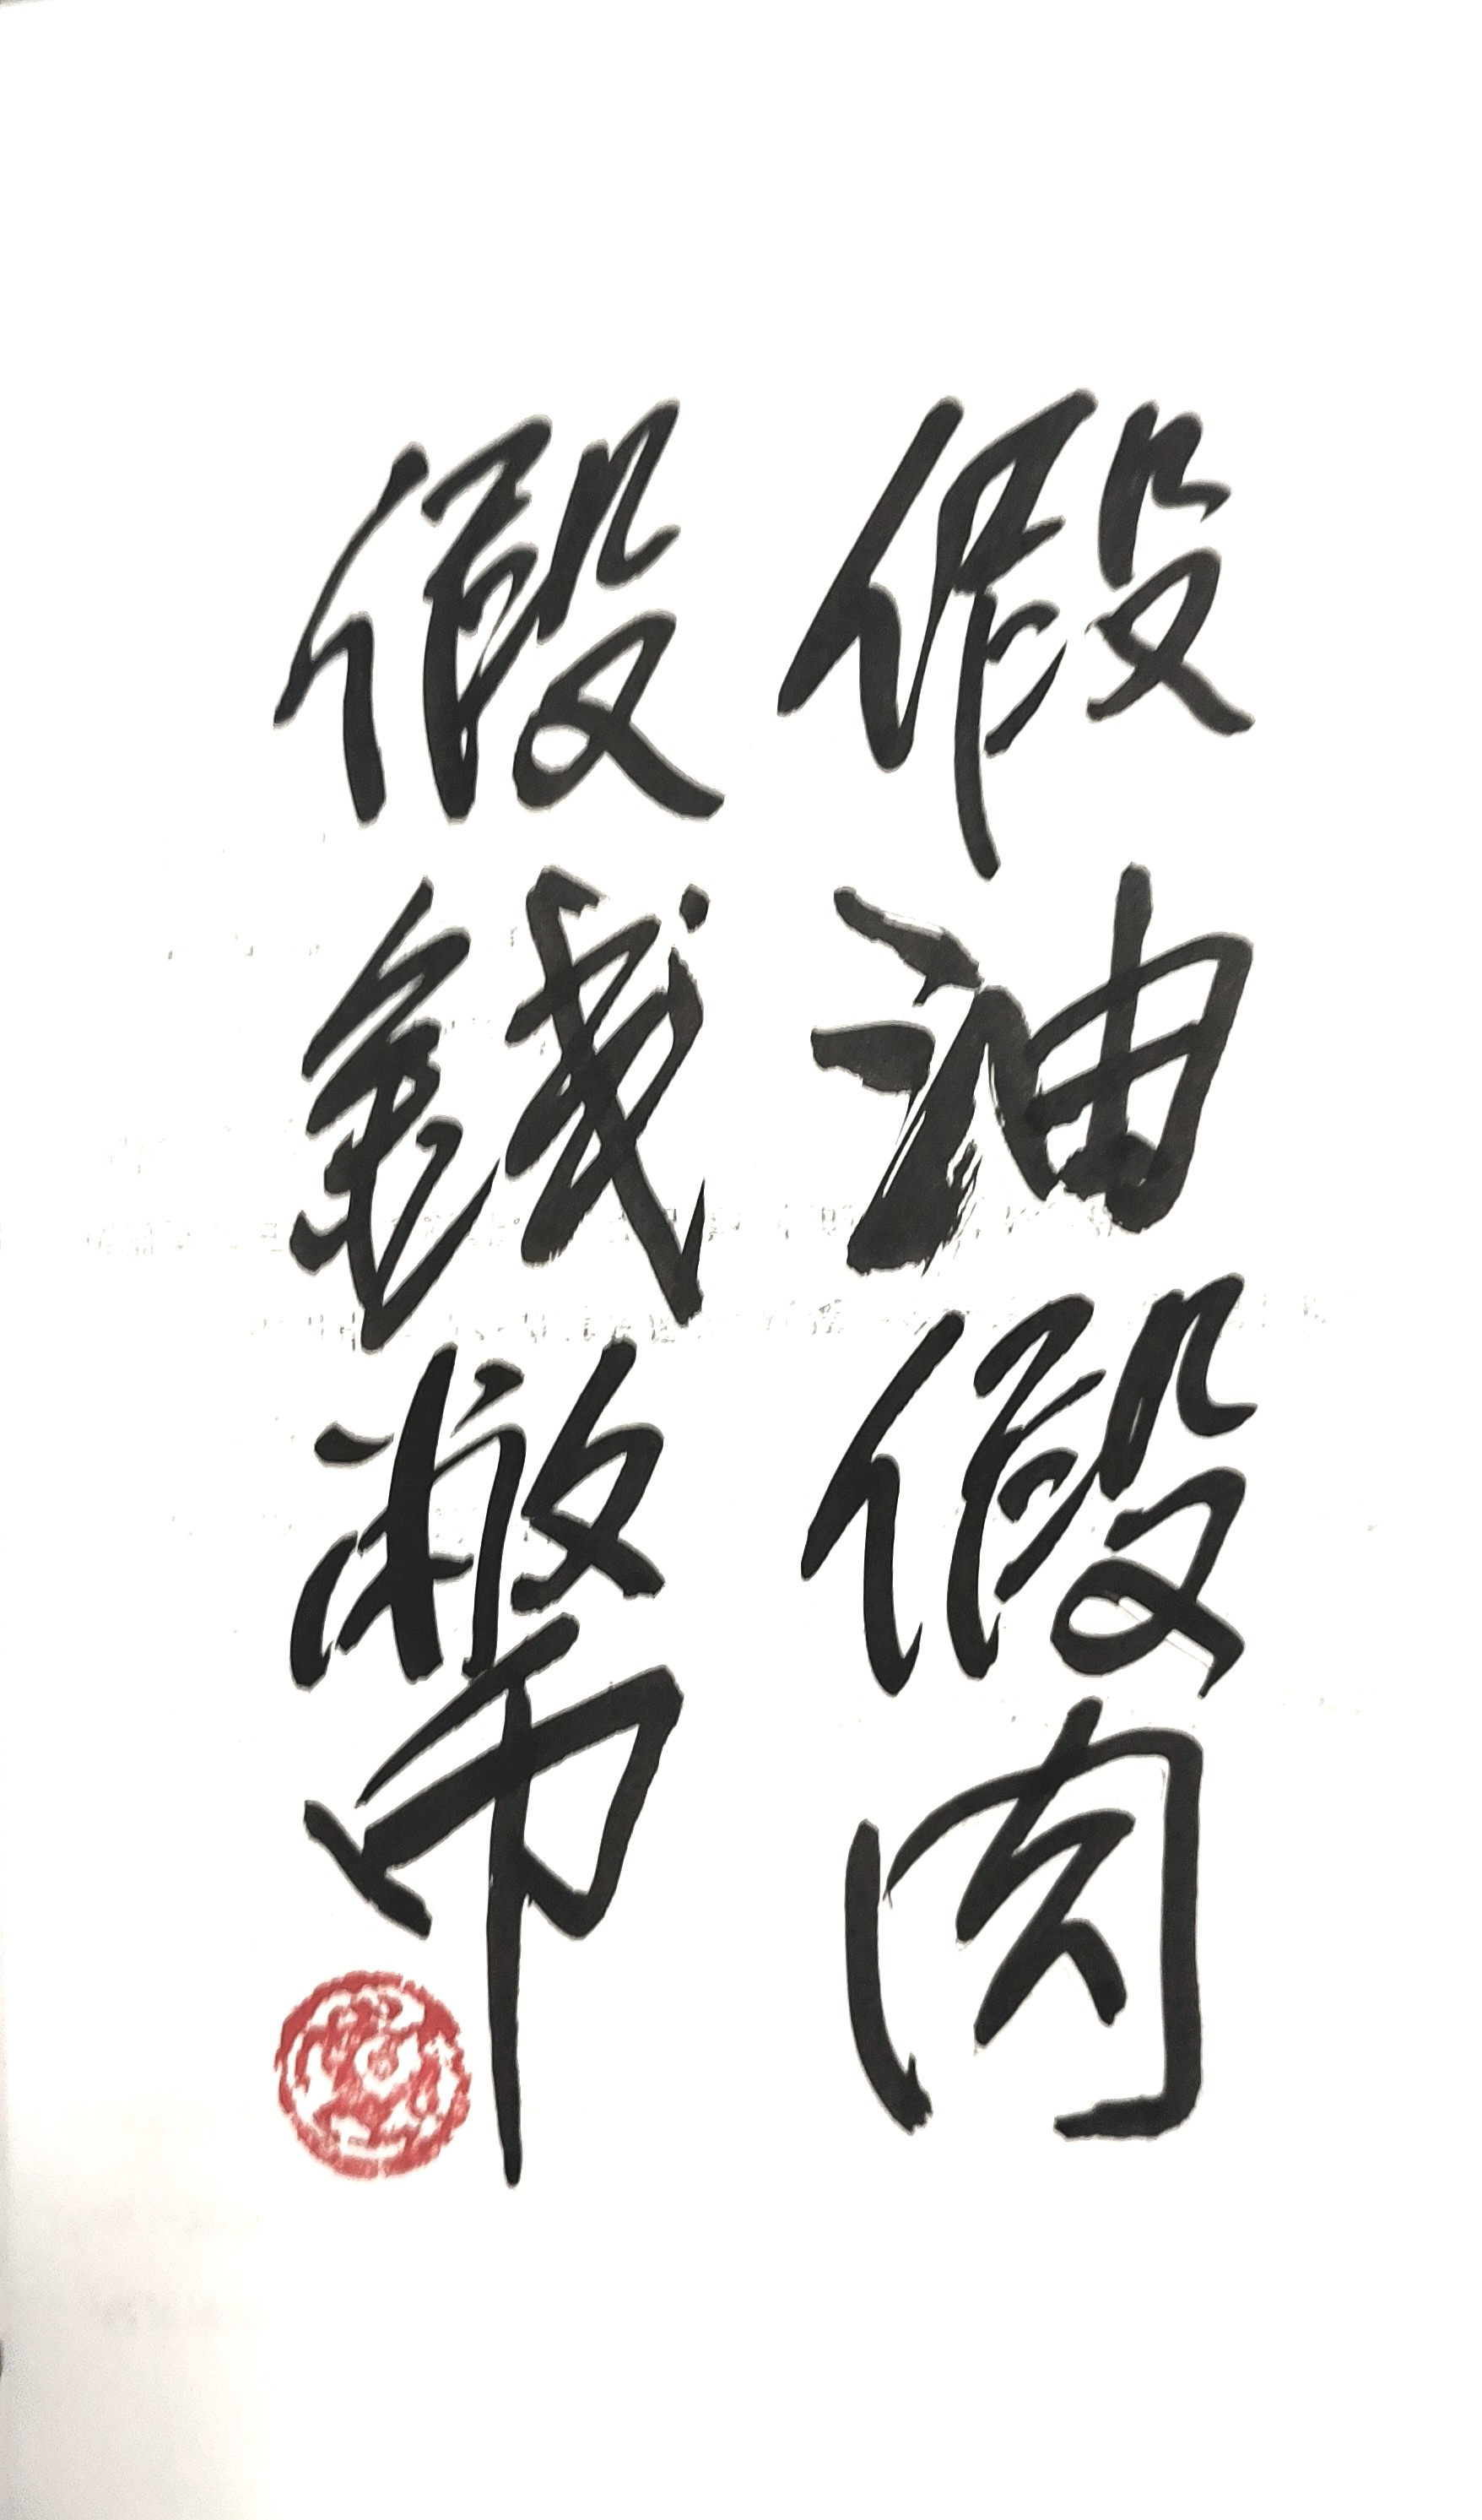 假油假肉
假錢幣